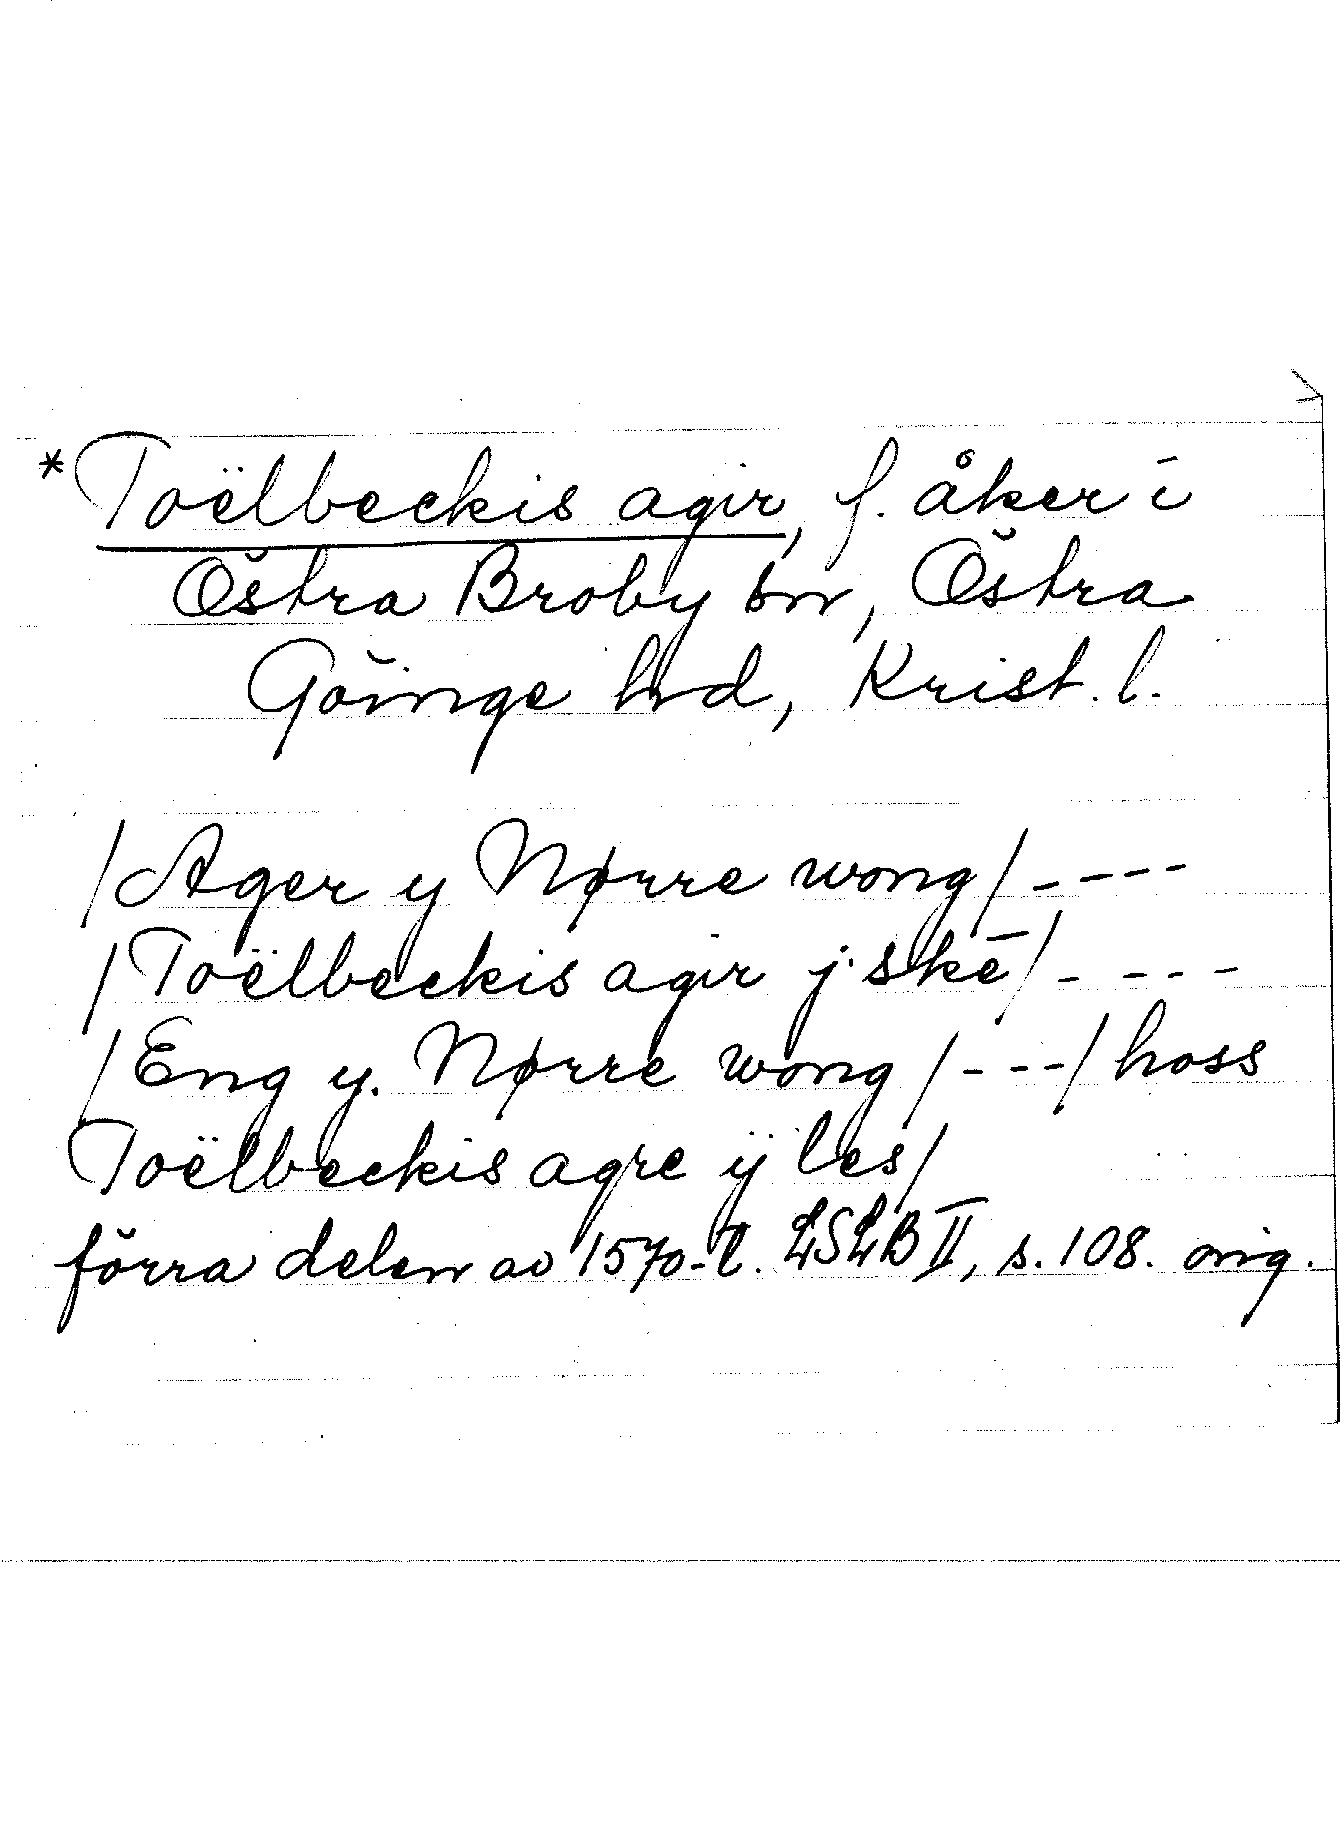 *Toëlbeckis agir, f. åker i
Östra Broby sn, Östra
Göinge hrd, Krist. l.
/Ager y Nørre wong/ ----
/Toëlbeckis agir j. skē/ ----
/Eng y. Nørre wong/---/ hoss
Toëlbeckis agre ÿ les/
förra delen av 1570-t. LSLB II, s. 108. orig.